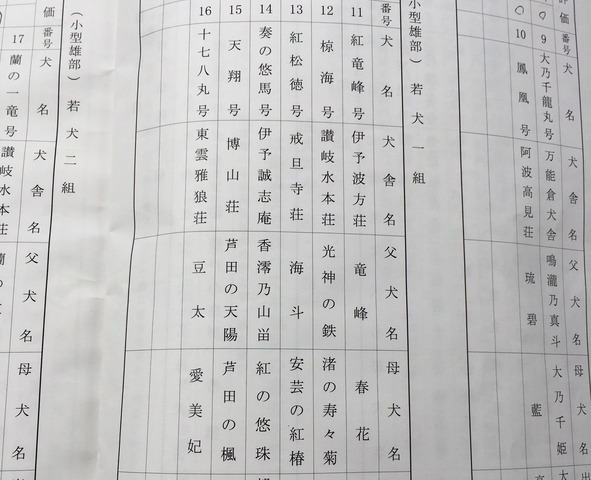 価 番号 犬名 犬舎名 父犬名 母犬名 出
9 大乃千龍丸号 万能倉犬舎 鳴瀧乃真斗 大乃千姫
10 鳳凰号 阿波高見荘 琉碧 藍
小型雄部） 若犬一組
番号 犬名 犬舎名 父犬名 母犬名
11 紅竜峰号 伊予波方荘 竜峰 春花
12 椋海号 讃岐水本荘 光神の鉄 渚の寿々菊
13 紅松徳号 戒旦寺荘 海斗 安芸の紅椿
14 奏の悠馬号 伊予誠志庵 紅の悠珠
15 天翔号 博山荘 芦田の天陽 芦田の楓
16 十七八丸号 東雲雅狼荘 豆太 愛美妃
（小型雄部） 若犬二組
価 番号 犬名 犬舎名 父犬名 母犬名
17 蘭の一竜号 讃岐水本荘